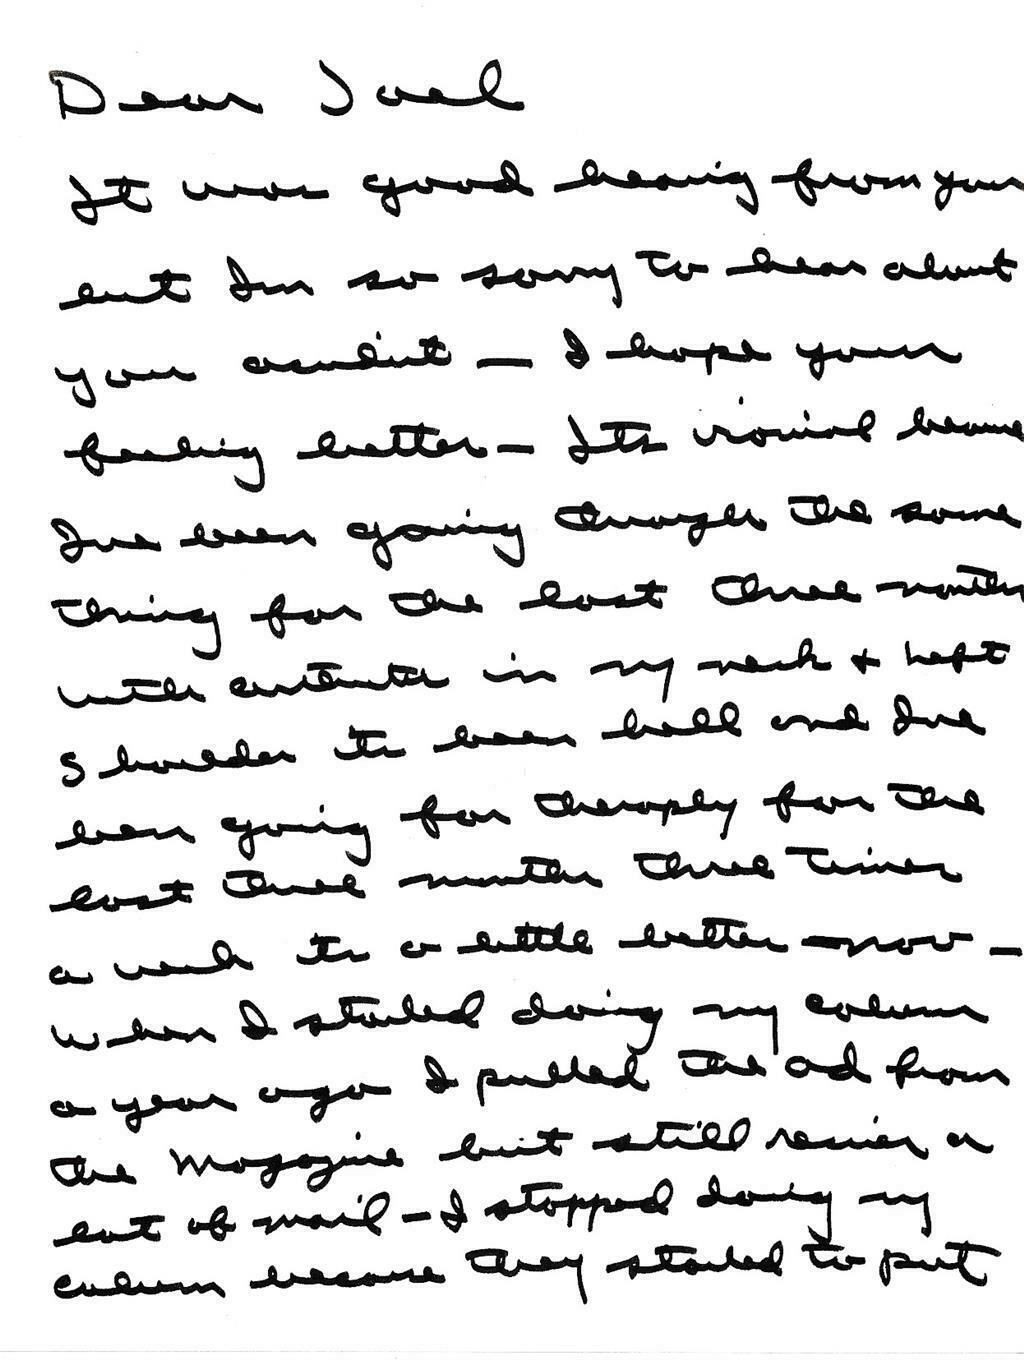 Dear Joel
It was good hearing from you
but Im so sorry to hear about
your accident — I hope your
feeling better — Its ironical because
Ive been going through the same
thing for the last three months
with in my neck & left
shoulder its been hell and Ive
been going for therapy for the
last three months three times
a week its a little better now —
When I started doing my column
a year ago I pulled the ad from
the Magazine but still receive a
lot of mail — I stopped doing my
column because they started to put